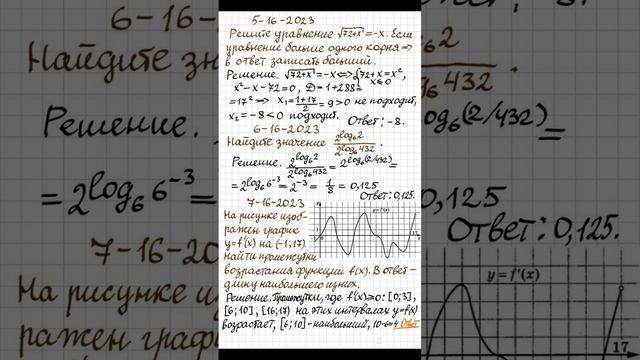 5-16-2023
Решите уравнение √72+x = -x. Если
уравнение больше одного корня ⇒
в ответ записать больший.
Решение. √72+x = -x ⇔ {72+x=x², x≤0
x²-x-72=0, D=1+288=
=17² ⇒ x₁=(1+17)/2=9>0 не подходит,
x₂=-8<0 подходит. Ответ: -8.
6-16-2023
Найдите значение 2^log₆2 / 2^log₆432.
Решение. 2^log₆2 / 2^log₆432 = 2^log₆(2/432) =
= 2^log₆6⁻³ = 2⁻³ = 1/8 = 0,125
Ответ: 0,125.
7-16-2023
На рисунке изоб-
ражен график
y=f'(x) на (-1;17).
Найти промежутки
возрастания функции f(x). В ответ-
длину наибольшего из них.
Решение. Промежутки, где f'(x)≥0: [0;3],
[6;10], [16;17) на этих интервалах y=f(x)
возрастает, [6;10]-наибольший, 10-6=4 Ответ
y=f'(x)
6-16-2023
Найдите
Решение.
= 2^log₆6⁻³
7-16-2023
На рисунке и
ражен граф
log₆2
log₆432
log₆(2/432) =
0,125
Ответ: 0,125.
y=f'(x)
17